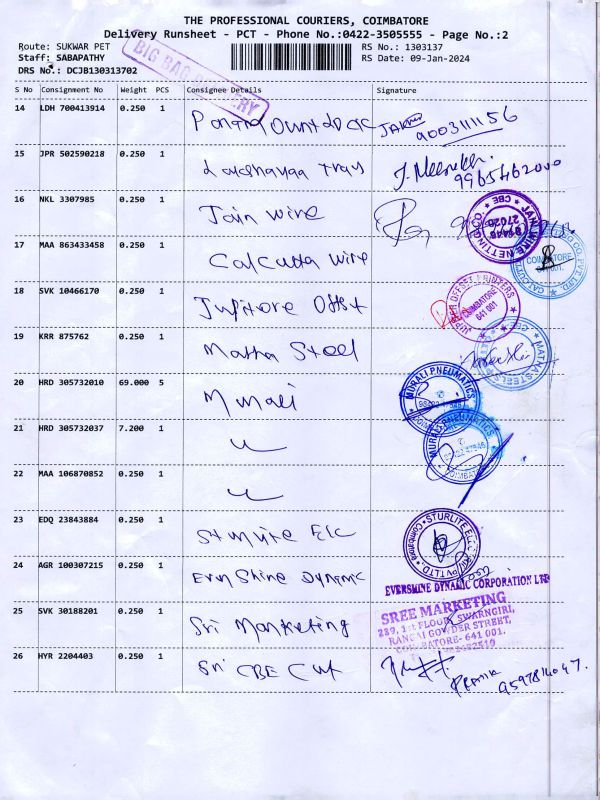 THE PROFESSIONAL COURIERS, COIMBATORE
Delivery Runsheet - PCT - Phone No.:0422-3505555 - Page No.:2
Route: SUKWAR PET
RS No.: 1303137
Staff: SABAPATHY
RS Date: 09-Jan-2024
DRS No.: DCJB130313702
BIG BAG DELIVERY
S No Consignment No Weight PCS Consignee Details Signature
14 LDH 700413914 0.250 1 9003111156
15 JPR 502590218 0.250 1 Lakshayaa Tray J. Meenakshi
9965462000
16 NKL 3307985 0.250 1 Jain wire
17 MAA 863433458 0.250 1 Calcutta wire
COIMBATORE
641 001.
18 SVK 10466170 0.250 1 OFFSET PRINTERS
COIMBATORE
641 001
19 KRR 875762 0.250 1 Matha Steel
20 HRD 305732010 69.000 5 Murali MURALI PNEUMATICS
21 HRD 305732037 7.200 1 MURALI PNEUMATICS
22 MAA 106870852 0.250 1
23 EDQ 23843884 0.250 1 STURLITE ELECTRIC PVT LTD.
24 AGR 100307215 0.250 1 Evershine Dynamic
EVERSMINE DYNAMIC CORPORATION LTD
25 SVK 30188201 0.250 1 Sri Marketing SREE MARKETING
289, 1st FLOOR, SWARNGIRI,
RANGAI GOWDER STREET,
COIMBATORE- 641 001.
26 HYR 2204403 0.250 1 Sri CBE
9597814047.